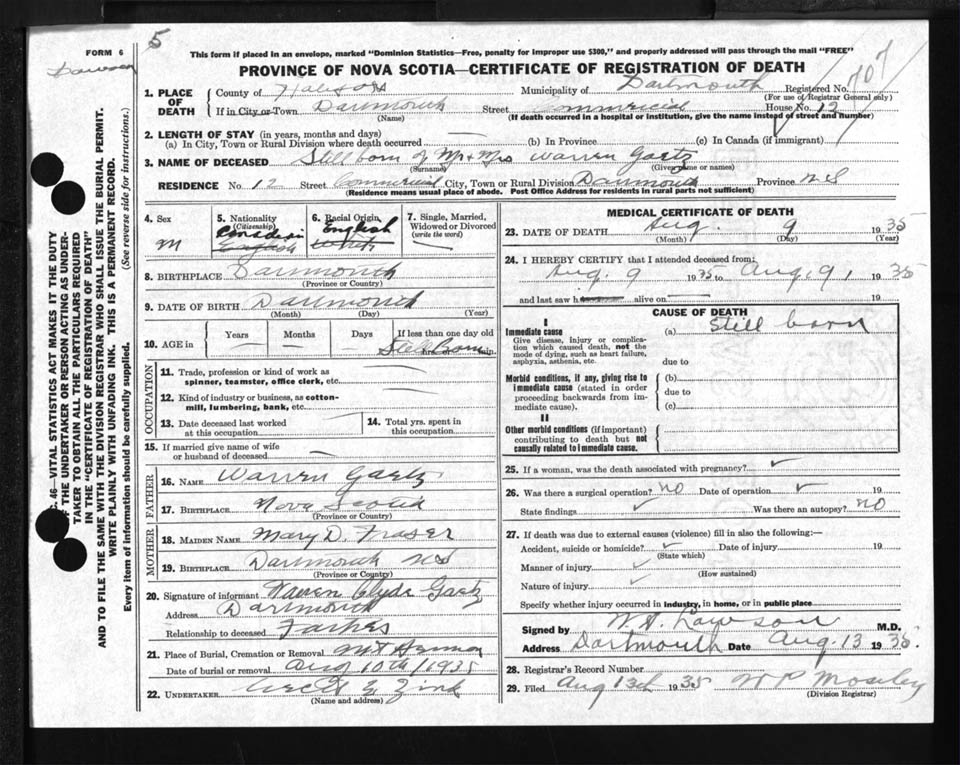 5
This form if placed in an envelope, marked "Dominion Statistics—Free, penalty for improper use $300," and properly addressed will pass through the mail "FREE"
FORM 6
PROVINCE OF NOVA SCOTIA—CERTIFICATE OF REGISTRATION OF DEATH
1. PLACE OF DEATH
County of Halifax Municipality of Dartmouth Registered No. 707
(For use of Registrar General only)
If in City or Town Dartmouth Street Commercial House No. 12
(Name) (If death occurred in a hospital or institution, give the name instead of street and number)
2. LENGTH OF STAY (in years, months and days)
(a) In City, Town or Rural Division where death occurred — (b) In Province (c) In Canada (if immigrant)
3. NAME OF DECEASED Still born of Mr + Mrs Warren Gaetz
(Surname) (Given name or names)
RESIDENCE No 12 Street Commercial City, Town or Rural Division Dartmouth Province N S
(Residence means usual place of abode. Post Office Address for residents in rural parts not sufficient)
4. Sex M
5. Nationality (Citizenship) Canadian English
6. Racial Origin English
7. Single, Married, Widowed or Divorced (write the word) —
8. BIRTHPLACE Dartmouth
(Province or Country)
9. DATE OF BIRTH Dartmouth
(Month) (Day) (Year)
10. AGE in Years Months Days If less than one day old
Still Born
OCCUPATION
11. Trade, profession or kind of work as spinner, teamster, office clerk, etc. —
12. Kind of industry or business, as cotton-mill, lumbering, bank, etc. —
13. Date deceased last worked at this occupation
14. Total yrs. spent in this occupation
15. If married give name of wife or husband of deceased —
FATHER
16. NAME Warren Gaetz
17. BIRTHPLACE Nova Scotia
(Province or Country)
MOTHER
18. MAIDEN NAME Mary D. Fraser
19. BIRTHPLACE Dartmouth N S
(Province or Country)
20. Signature of informant Warren Clyde Gaetz
Address Dartmouth
Relationship to deceased Father
21. Place of Burial, Cremation or Removal Mt Hermon
Date of burial or removal Aug 10th/1935
22. UNDERTAKER E Zink
(Name and address)
MEDICAL CERTIFICATE OF DEATH
23. DATE OF DEATH Aug. 9 1935
(Month) (Day) (Year)
24. I HEREBY CERTIFY that I attended deceased from:
Aug. 9 1935 to Aug. 9, 1935
and last saw h alive on 19
CAUSE OF DEATH
I
Immediate cause (a) Still born
Give disease, injury or complication which caused death, not the mode of dying, such as heart failure, asphyxia, asthenia, etc.
due to
Morbid conditions, if any, giving rise to immediate cause (stated in order proceeding backwards from immediate cause).
(b)
due to
(c)
II
Other morbid conditions (if important) contributing to death but not causally related to immediate cause.
25. If a woman, was the death associated with pregnancy? ✓
26. Was there a surgical operation? no Date of operation ✓ 19
State findings ✓ Was there an autopsy? no
27. If death was due to external causes (violence) fill in also the following:—
Accident, suicide or homicide? ✓ Date of injury 19
(State which)
Manner of injury ✓
(How sustained)
Nature of injury ✓
Specify whether injury occurred in industry, in home, or in public place
Signed by W. A. Lawson M.D.
Address Dartmouth Date Aug. 13 1935.
28. Registrar's Record Number
29. Filed Aug 13th 1935 W P Moseley
(Division Registrar)
46—VITAL STATISTICS ACT MAKES IT THE DUTY
OF THE UNDERTAKER OR PERSON ACTING AS UNDERTAKER TO OBTAIN ALL THE PARTICULARS REQUIRED
IN THE "CERTIFICATE OF REGISTRATION OF DEATH"
AND TO FILE THE SAME WITH THE DIVISION REGISTRAR WHO SHALL ISSUE THE BURIAL PERMIT.
WRITE PLAINLY WITH UNFADING INK. THIS IS A PERMANENT RECORD.
Every item of information should be carefully supplied. (See reverse side for instructions.)